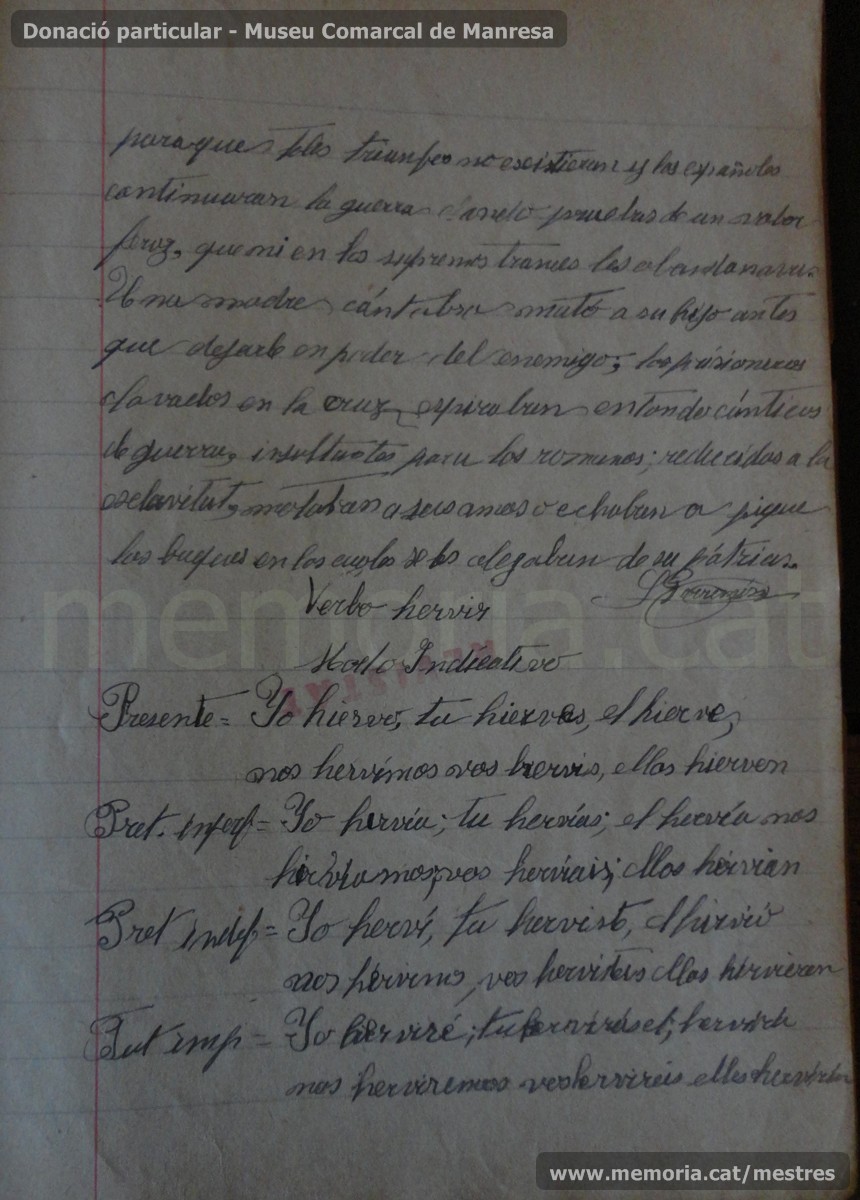 Donació particular - Museu Comarcal de Manresa
para que tales triunfos no existieran y los españoles
continuaran la guerra dando pruebas de un valor
feroz, que ni en los supremos trances les abandonaru.
Una madre cántabra mató a su hijo antes
que dejarle en poder del enemigo; los prisioneros
clavados en la cruz, espiraban entondo cánticos
de guerra, insultantes para los romanos; reducidos a la
esclavitut, mataban a sus amos o echaban a pique
los buques en los cuales se les alegaban de su pátria.
Verbo hervir
Modo Indicativo
Presente = Yo hiervo, tu hierves, el hierve,
nos hervimos vos hervis, ellos hierven
Pret. imperf = Yo hervia; tu hervías; el hervía nos
herviamos, vos herviais; ellos hervian
Pret indef = Yo herví, tu herviste, el hirvió
nos hervimos, vos hervisteis ellos hirvieron
Fut imp = Yo herviré; tu hervirás el; hervirá
nos herviremos vos hervireis ellos hervirán
memoria.cat
www.memoria.cat/mestres